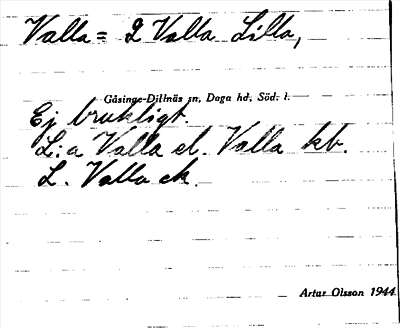 Valla = 2 Valla Lilla,
Gåsinge-Dillnäs sn, Daga hd, Söd. l.
Ej brukligt.
L:a Valla el. Valla kb.
L. Valla ek.
Artur Olsson 1944